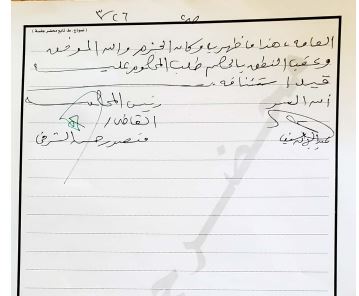 ٣/٢٦
( نموذج ملحق تابع محضر جلسة )
العامة ، هذا ما ظهر لنا وكان الختم والله الموفق
وعقب النطق بالحكم طلب المحكوم عليه
قيد استئنافه
أمين السر رئيس المحكمة
القاضي /
منصور حسن الشرفي
محضر ج